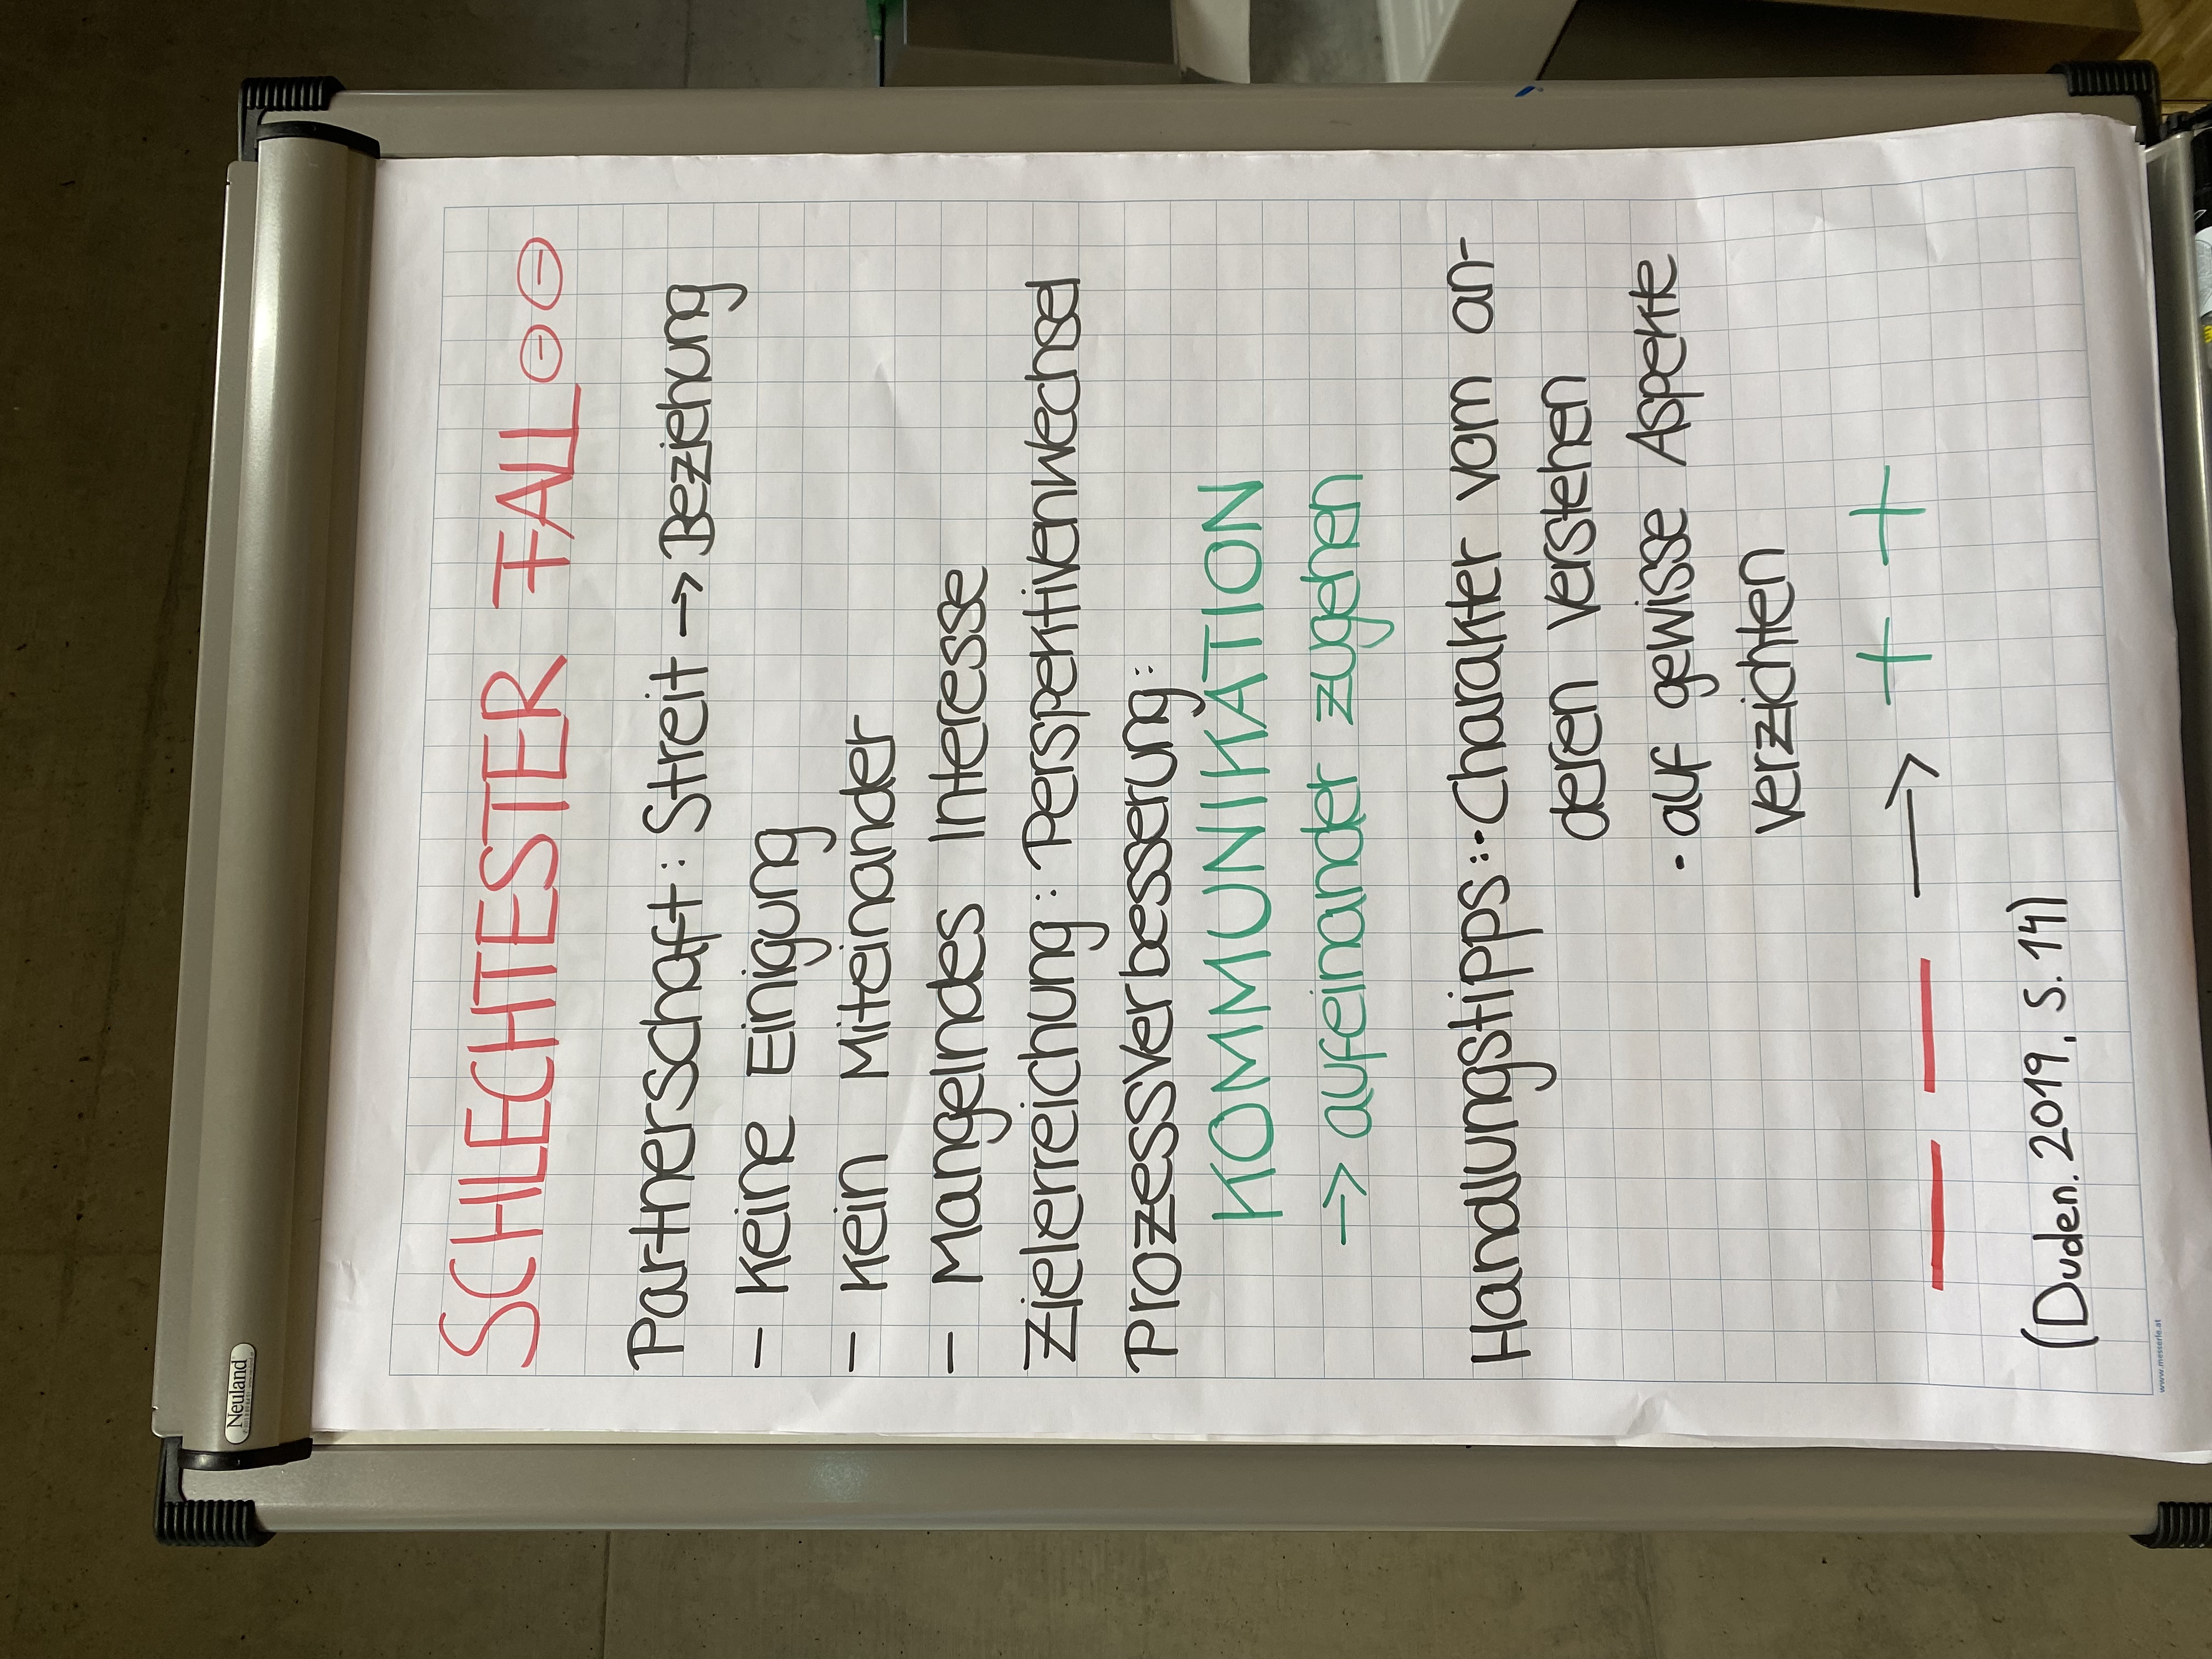 Neuland
SCHLECHTESTER FALL ⊖⊖
Partnerschaft: Streit → Beziehung
- Keine Einigung
- Kein Miteinander
- Mangelndes Interesse
Zielerreichung: Perspektivenwechsel
Prozessverbesserung:
KOMMUNIKATION
→ aufeinander zugehen
Handlungstipps: • Charakter vom an-
deren verstehen
• auf gewisse Aspekte
verzichten
— — → + +
(Duden. 2019, S. 14)
www.messerle.at